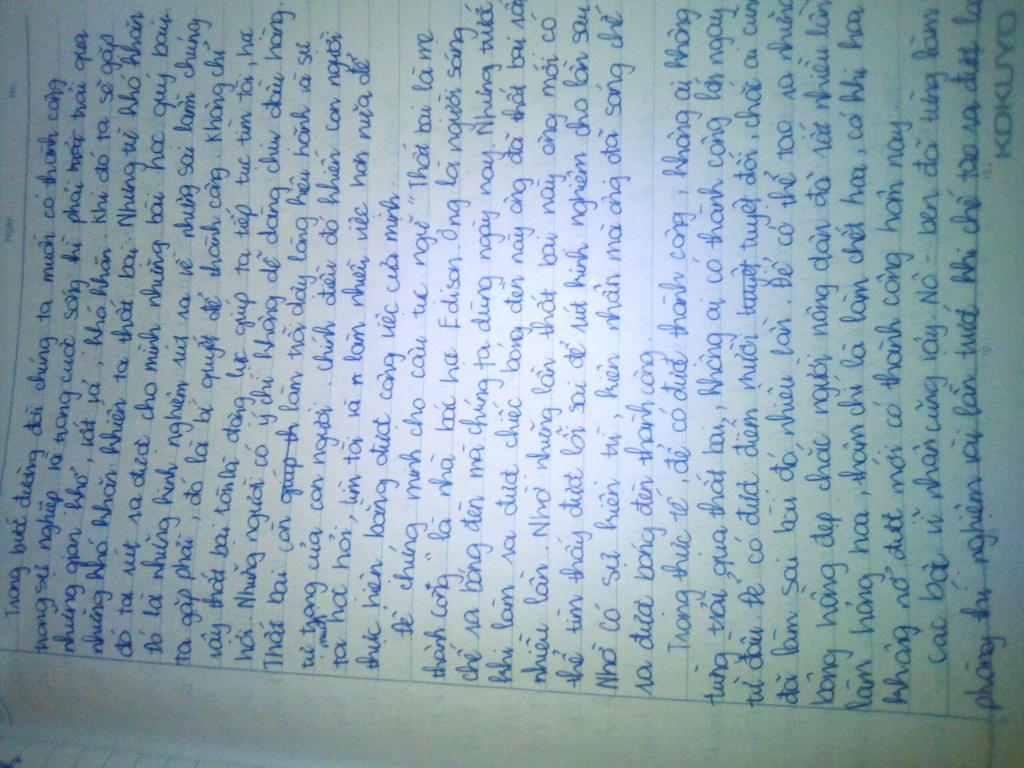 Trong bước đường đời chúng ta muốn có thành công
trong sự nghiệp và trong cuộc sống thì phải trải qua
những gian khổ, vất vả, khó khăn. Khi đó ta sẽ gặp
những khó khăn khiến ta thất bại. Nhưng từ khó khăn
đó ta rút ra được cho mình những bài học quý báu.
Đó là những kinh nghiệm rút ra về những sai lầm chúng
ta gặp phải, đó là bí quyết để thành công. Không chỉ
vậy thất bại còn là động lực giúp ta tiếp tục tìm tòi, học
hỏi. Những người có ý chí không dễ dàng chịu đầu hàng.
Thất bại còn giúp th làm trỗi dậy lòng kiêu hãnh và sự
tự trọng của con người. Chính điều đó khiến con người
ta muốn học hỏi, tìm tòi và n làm nhiều việc hơn nữa để
thực hiện bằng được công việc của mình.
Để chứng minh cho câu tục ngữ "Thất bại là mẹ
thành công" là nhà bác học Edison. Ông là người sáng
chế ra bóng đèn mà chúng ta dùng ngày nay. Nhưng trước
khi làm ra được chiếc bóng đèn này ông đã thất bại rất
nhiều lần. Nhờ những lần thất bại này ông mới có
thể tìm thấy được lỗi sai để rút kinh nghiệm cho lần sau
Nhờ có sự kiên trì, kiên nhẫn mà ông đã sáng chế
ra được bóng đèn thành công.
Trong thực tế để có được thành công, không ai không
từng trải qua thất bại, không ai có thành công lớn ngay
từ đầu. Để có được điểm mười tuyệt tuyệt đối chắc ai cũng
đã làm sai bài đó nhiều lần. Để có thể tạo ra những
bông hồng đẹp chắc người nông dân đã rất nhiều lần
làm hỏng hoa, thậm chí là làm chết hoa, có khi hoa
không nở được mới có thành công hôm nay
Các bậc vĩ nhân cũng vậy. Nô-ben đã từng làm
phòng thí nghiệm vài lần trước khi chế tạo ra được
KOKUYO